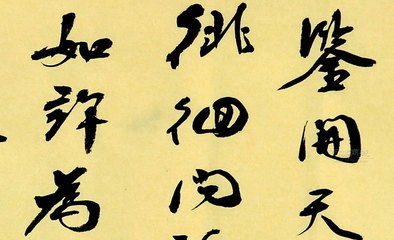 鑒開天
徘徊問
如許為